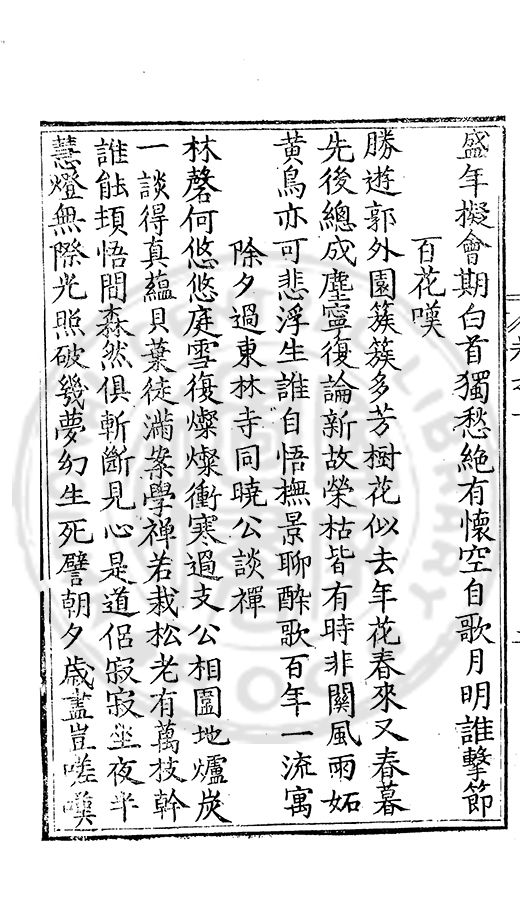 盛年擬會期白首獨愁絶有懷空自歌月明誰擊節
百花嘆
勝遊郭外園簇簇多芳樹花似去年花春來又春暮
先後總成塵寧復論新故榮枯皆有時非關風雨妬
黄鳥亦可悲浮生誰自悟撫景聊酔歌百年一流寓
除夕過東林寺同曉公談禪
林磬何悠悠庭雪復燦燦衝寒過支公相圍地爐炭
一談得真蘊貝葉徒滿案學禅若栽松老有萬枝幹
誰能頓悟間森然俱斬斷見心是道侣寂寂坐夜半
慧燈無際光照破幾夢幻生死譬朝夕歲盡豈嗟嘆